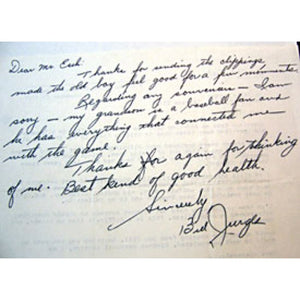 Dear Mr Esch:
Thanks for sending the clippings
made the old boy feel good for a few moments.
Regarding any souvenirs - I am
sorry - my grandson is a baseball fan and
he has everything that connected me
with the game.
Thanks for again for thinking
of me. Best kind of good health.
Sincerely
Bill Jurges